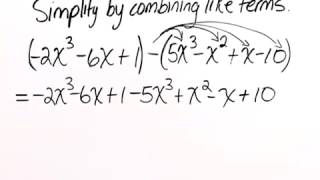 Simplify by combining like terms.
(-2x³-6x+1)-(5x³-x²+x-10)
=-2x³-6x+1-5x³+x²-x+10